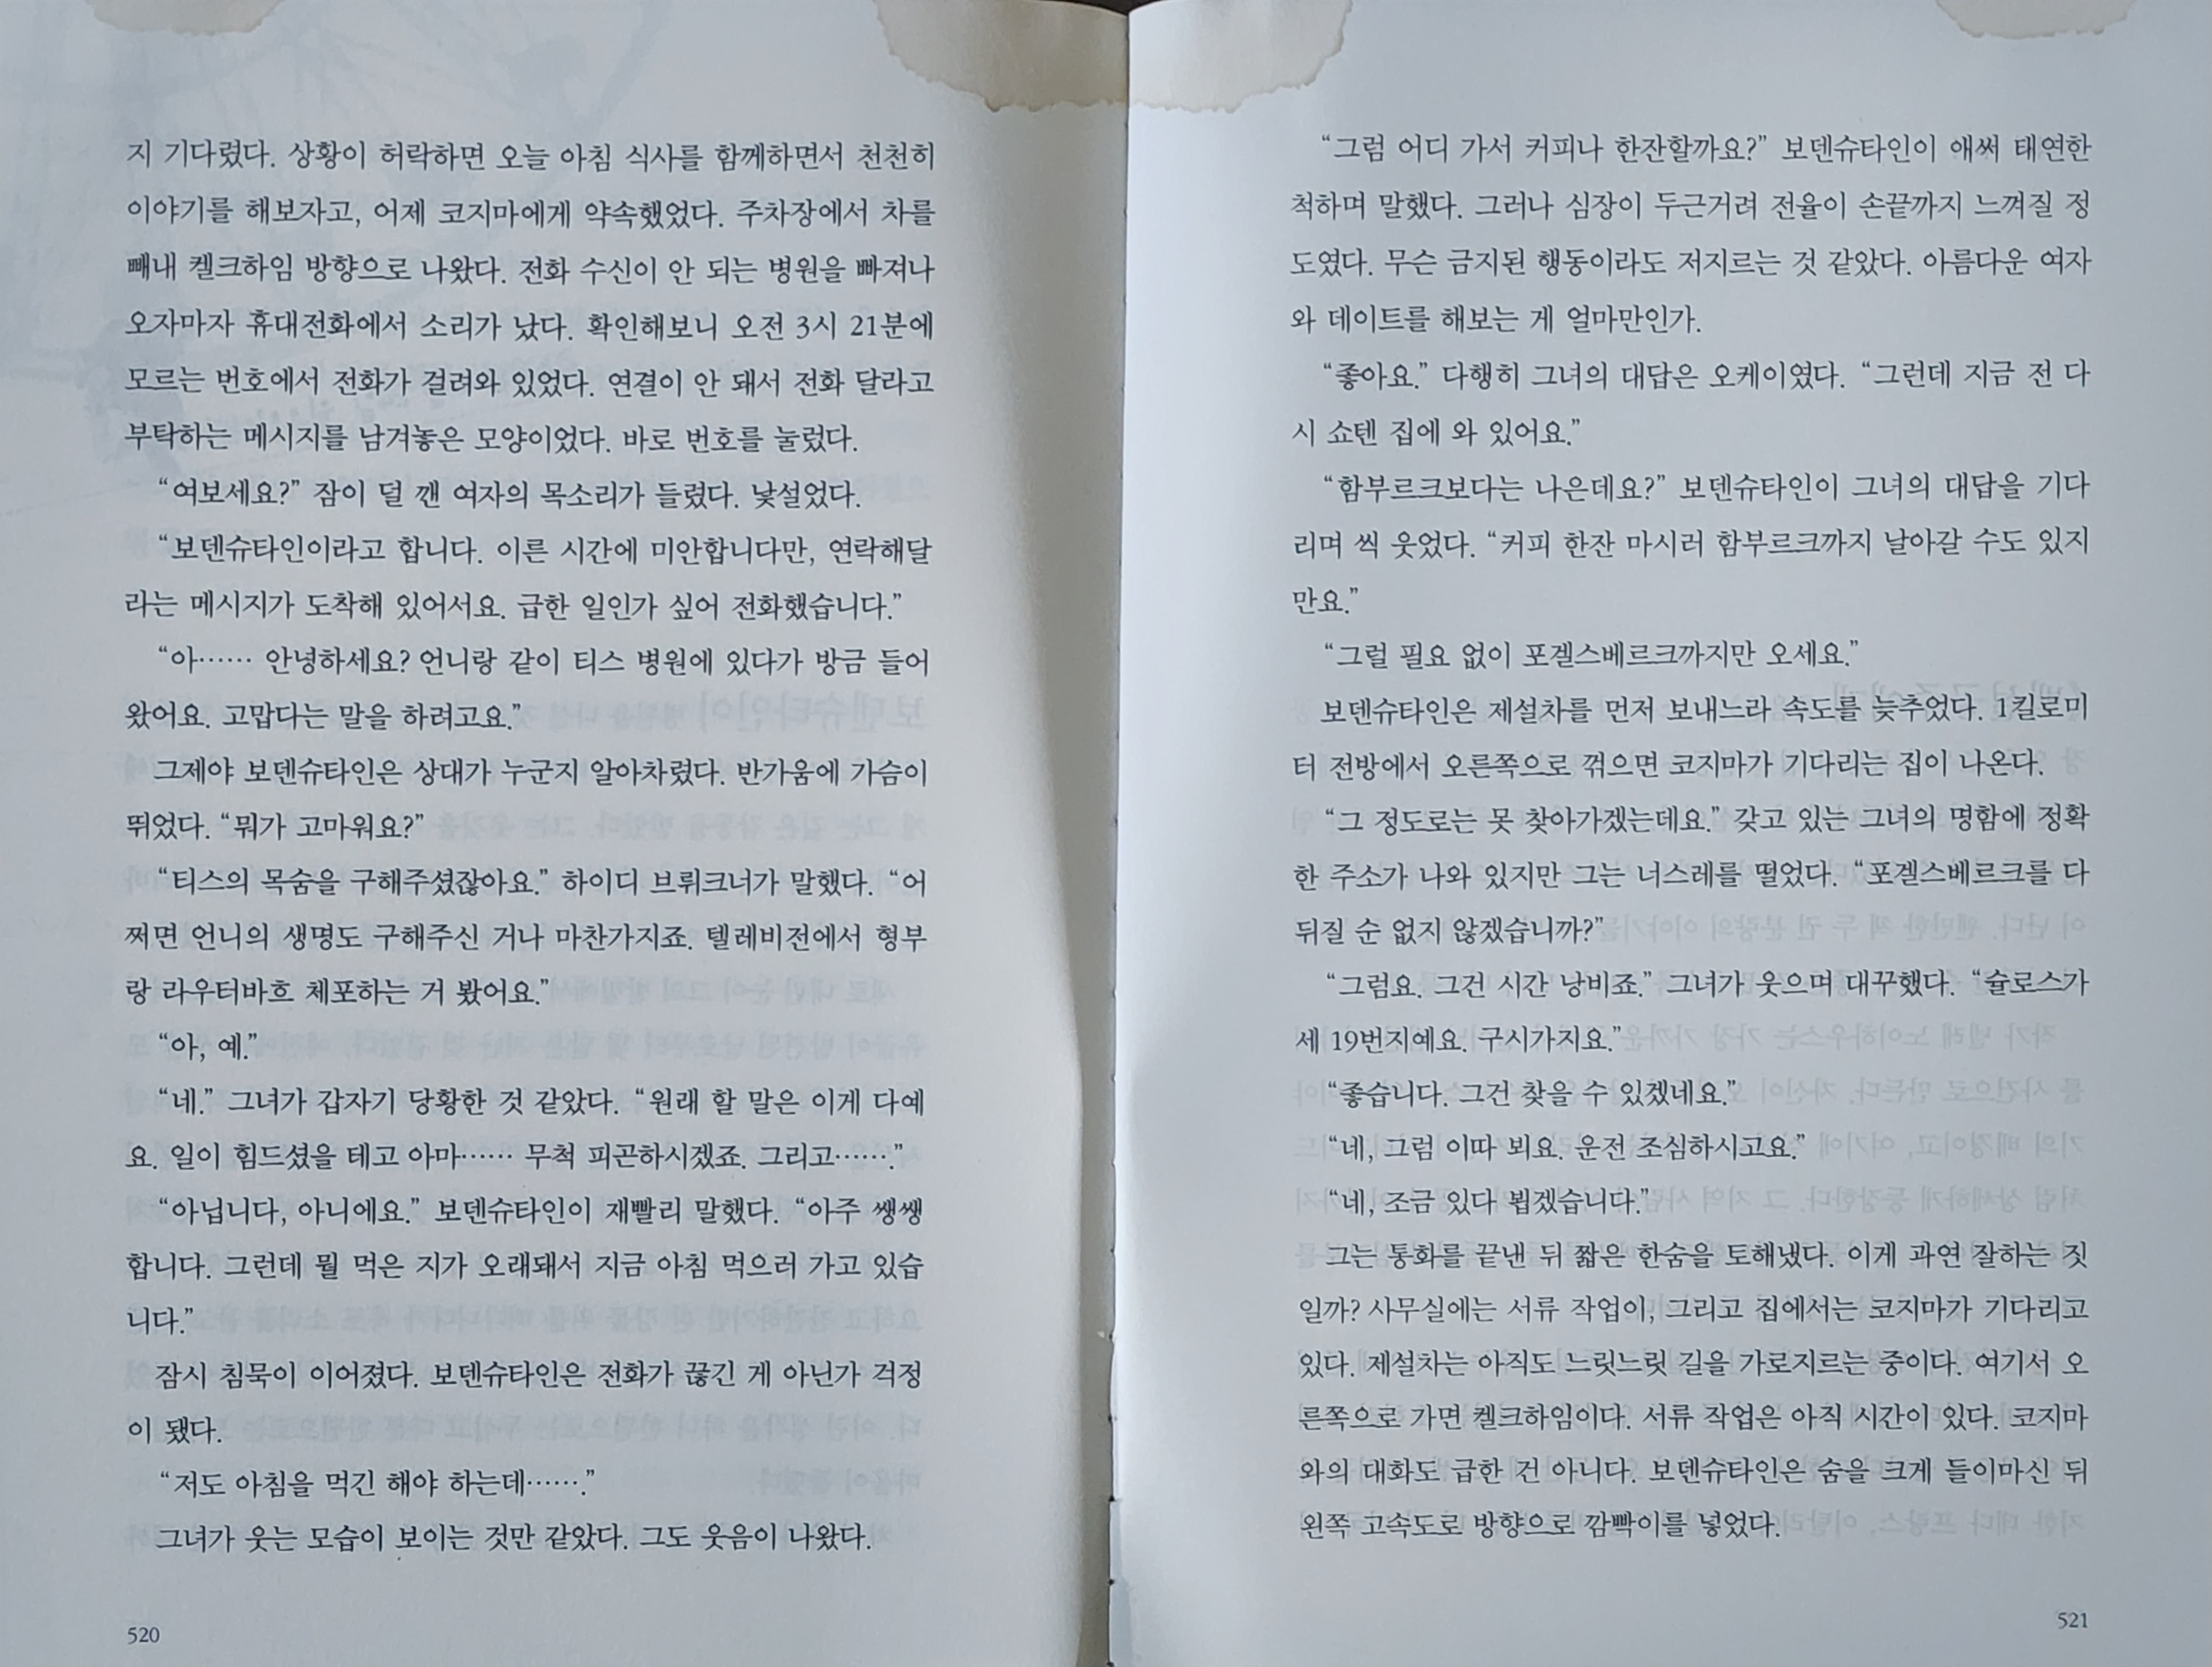 지 기다렸다. 상황이 허락하면 오늘 아침 식사를 함께하면서 천천히
이야기를 해보자고, 어제 코지마에게 약속했었다. 주차장에서 차를
빼내 켈크하임 방향으로 나왔다. 전화 수신이 안 되는 병원을 빠져나
오자마자 휴대전화에서 소리가 났다. 확인해보니 오전 3시 21분에
모르는 번호에서 전화가 걸려와 있었다. 연결이 안 돼서 전화 달라고
부탁하는 메시지를 남겨놓은 모양이었다. 바로 번호를 눌렀다.
“여보세요?” 잠이 덜 깬 여자의 목소리가 들렸다. 낯설었다.
“보덴슈타인이라고 합니다. 이른 시간에 미안합니다만, 연락해달
라는 메시지가 도착해 있어서요. 급한 일인가 싶어 전화했습니다.”
“아…… 안녕하세요? 언니랑 같이 티스 병원에 있다가 방금 들어
왔어요. 고맙다는 말을 하려고요.”
그제야 보덴슈타인은 상대가 누군지 알아차렸다. 반가움에 가슴이
뛰었다. “뭐가 고마워요?”
“티스의 목숨을 구해주셨잖아요.” 하이디 브뤼크너가 말했다. “어
쩌면 언니의 생명도 구해주신 거나 마찬가지죠. 텔레비전에서 형부
랑 라우터바흐 체포하는 거 봤어요.”
“아, 예.”
“네.” 그녀가 갑자기 당황한 것 같았다. “원래 할 말은 이게 다예
요. 일이 힘드셨을 테고 아마…… 무척 피곤하시겠죠. 그리고…….”
“아닙니다, 아니에요.” 보덴슈타인이 재빨리 말했다. “아주 쌩쌩
합니다. 그런데 뭘 먹은 지가 오래돼서 지금 아침 먹으러 가고 있습
니다.”
잠시 침묵이 이어졌다. 보덴슈타인은 전화가 끊긴 게 아닌가 걱정
이 됐다.
“저도 아침을 먹긴 해야 하는데…….”
그녀가 웃는 모습이 보이는 것만 같았다. 그도 웃음이 나왔다.
520
“그럼 어디 가서 커피나 한잔할까요?” 보덴슈타인이 애써 태연한
척하며 말했다. 그러나 심장이 두근거려 전율이 손끝까지 느껴질 정
도였다. 무슨 금지된 행동이라도 저지르는 것 같았다. 아름다운 여자
와 데이트를 해보는 게 얼마만인가.
“좋아요.” 다행히 그녀의 대답은 오케이였다. “그런데 지금 전 다
시 쇼텐 집에 와 있어요.”
“함부르크보다는 나은데요?” 보덴슈타인이 그녀의 대답을 기다
리며 씩 웃었다. “커피 한잔 마시러 함부르크까지 날아갈 수도 있지
만요.”
“그럴 필요 없이 포겔스베르크까지만 오세요.”
보덴슈타인은 제설차를 먼저 보내느라 속도를 늦추었다. 1킬로미
터 전방에서 오른쪽으로 꺾으면 코지마가 기다리는 집이 나온다.
“그 정도로는 못 찾아가겠는데요.” 갖고 있는 그녀의 명함에 정확
한 주소가 나와 있지만 그는 너스레를 떨었다. “포겔스베르크를 다
뒤질 순 없지 않겠습니까?”
“그럼요. 그건 시간 낭비죠.” 그녀가 웃으며 대꾸했다. “슐로스가
세 19번지예요. 구시가지요.”
“좋습니다. 그건 찾을 수 있겠네요.”
“네, 그럼 이따 뵈요. 운전 조심하시고요.”
“네, 조금 있다 뵙겠습니다.”
그는 통화를 끝낸 뒤 짧은 한숨을 토해냈다. 이게 과연 잘하는 짓
일까? 사무실에는 서류 작업이, 그리고 집에서는 코지마가 기다리고
있다. 제설차는 아직도 느릿느릿 길을 가로지르는 중이다. 여기서 오
른쪽으로 가면 켈크하임이다. 서류 작업은 아직 시간이 있다. 코지마
와의 대화도 급한 건 아니다. 보덴슈타인은 숨을 크게 들이마신 뒤
왼쪽 고속도로 방향으로 깜빡이를 넣었다.
521